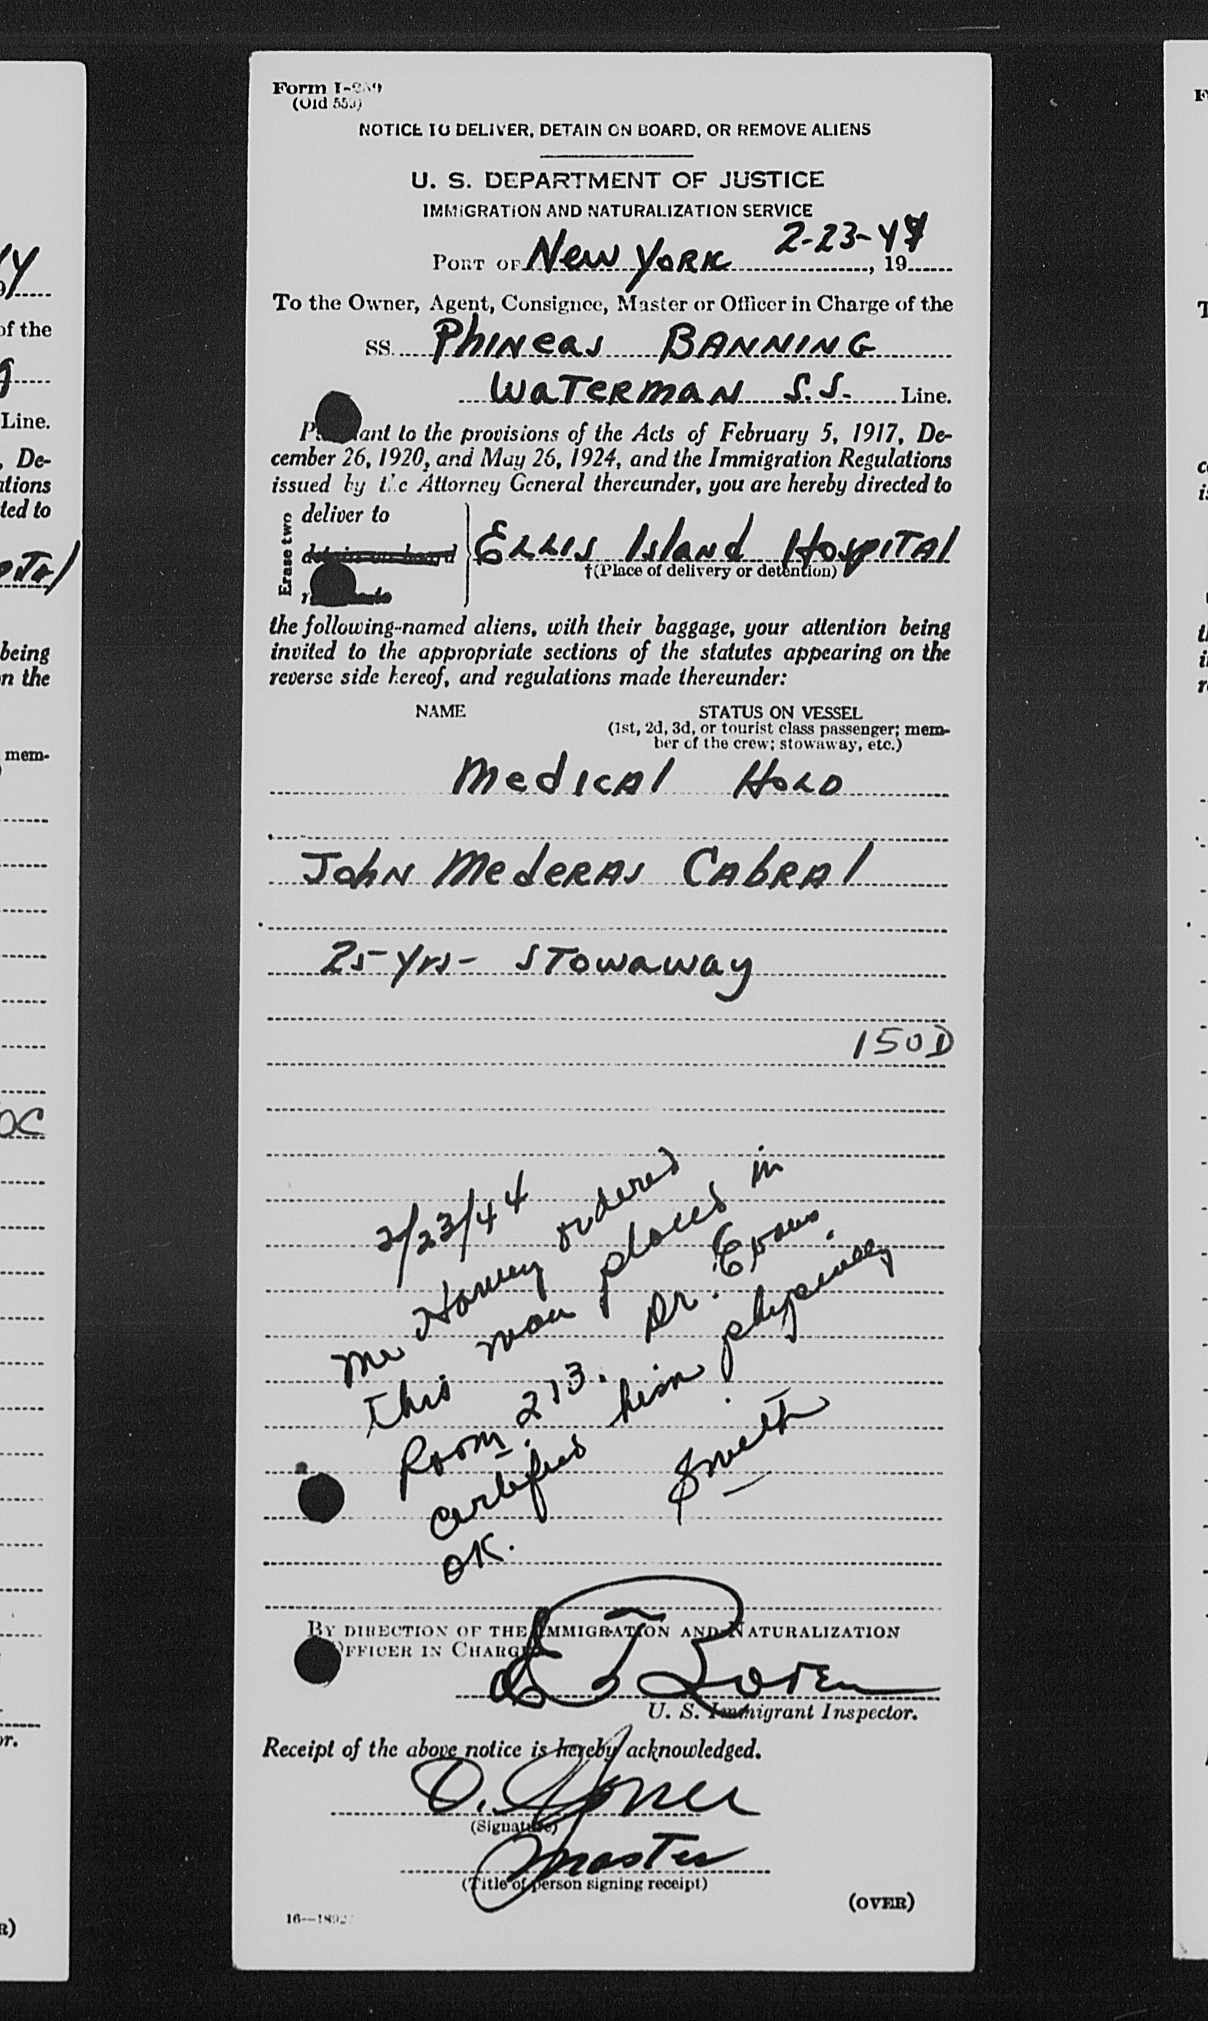 Form I-259
(Old 553)
NOTICE TO DELIVER, DETAIN ON BOARD, OR REMOVE ALIENS
U. S. DEPARTMENT OF JUSTICE
IMMIGRATION AND NATURALIZATION SERVICE
2-23-44
PORT OF New YORK, 19
To the Owner, Agent, Consignee, Master or Officer in Charge of the
SS. Phineas BANNING
WATERMAN S.S. Line.
Pursuant to the provisions of the Acts of February 5, 1917, De-
cember 26, 1920, and May 26, 1924, and the Immigration Regulations
issued by the Attorney General thereunder, you are hereby directed to
Erase two
deliver to
ELLIS Island HospiTAl
†(Place of delivery or detention)
the following-named aliens, with their baggage, your attention being
invited to the appropriate sections of the statutes appearing on the
reverse side hereof, and regulations made thereunder:
NAME STATUS ON VESSEL
(1st, 2d, 3d, or tourist class passenger; mem-
ber of the crew; stowaway, etc.)
Medical Hold
John MedeRAs CAbRAl
25-yrs- STowaway
150D
2/23/44
Mr Harvey ordered
this man placed in
Room 213. Dr. Evans
certified him physically
OK. Smith
BY DIRECTION OF THE IMMIGRATION AND NATURALIZATION
OFFICER IN CHARGE
U. S. Immigrant Inspector.
Receipt of the above notice is hereby acknowledged.
O.
(Signature)
Master
(Title of person signing receipt)
(OVER)